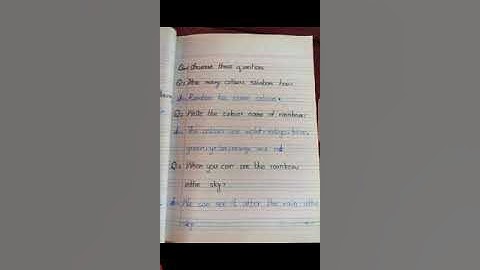 Q:- Answer these questions
Q:- How many colours rainbow have
A:- Rainbow has seven colours.
Q:- Write the colours name of rainbow.
A:- The colours are violet indigo blue
green yellow orange and red
Q:- When you can see the rainbow
in the sky?
A:- We can see it after the rain in the
sky